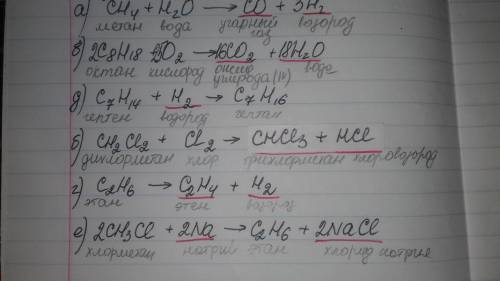 а) CH₄ + H₂O → CO + 3H₂
метан вода угарный водород
газ
в) 2C₈H₁₈ + 25O₂ → 16CO₂ + 18H₂O
октан кислород оксид вода
углерода (IV)
д) C₇H₁₄ + H₂ → C₇H₁₆
гептен водород гептан
б) CH₂Cl₂ + Cl₂ → CHCl₃ + HCl
дихлорметан хлор трихлорметан хлороводород
г) C₂H₆ → C₂H₄ + H₂
этан этен водород
е) 2CH₃Cl + 2Na → C₂H₆ + 2NaCl
хлорметан натрий этан хлорид натрия